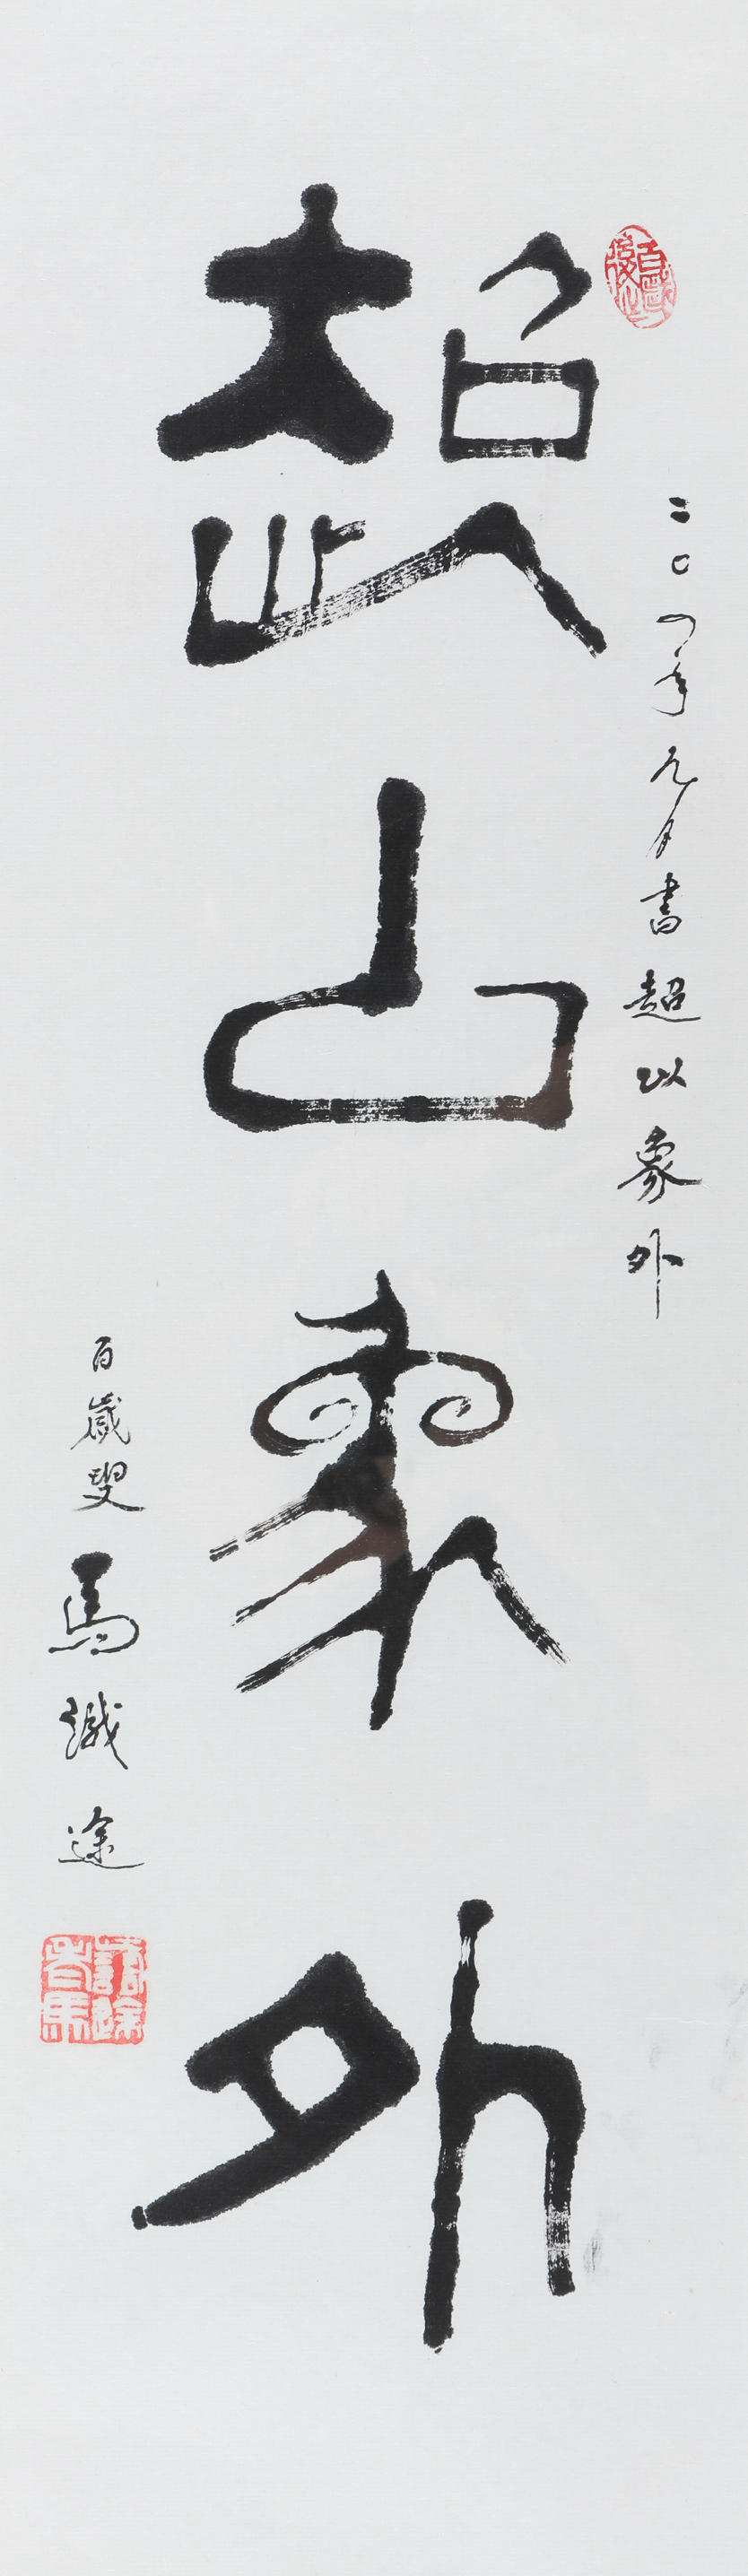 超以象外
二〇一四年元月書超以象外
百歲叟馬識途
識途老馬